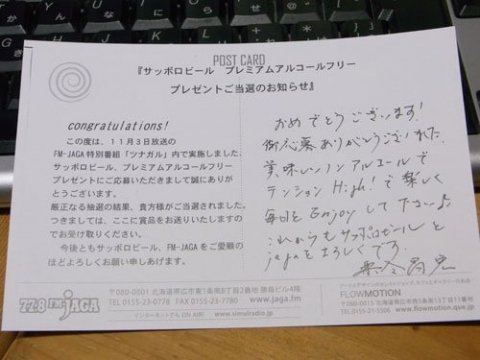 POST CARD
『サッポロビール プレミアムアルコールフリー
プレゼントご当選のお知らせ』
congratulations!
この度は、11月3日放送の
FM-JAGA 特別番組「ツナガル」内で実施しました、
サッポロビール、プレミアムアルコールフリー
プレゼントにご応募いただきまして誠にありが
とうございます。
厳正なる抽選の結果、貴方様がご当選されました。
つきましては、ここに賞品をお送りいたしますの
でお受け取りください。
今後ともサッポロビール、FM-JAGA をご愛顧の
ほどよろしくお願い申しあげます。
おめでとうございます!
御応募ありがとうございました。
美味しいノンアルコールで
テンション High! で楽しく
毎日を Enjoy して下さい
これからもサッポロビールと
jagaをよろしくです。
77.8 FM-JAGA
〒080-0801 北海道帯広市東1条南8丁目2番地 勝毎ビル4階
TEL 0155-23-7778 FAX 0155-23-7780 www.jaga.fm
インターネットでん ON AIR! www.simulradio.jp
FLOWMOTION
TEL 0155-21-5506 www.flowmotion.que.jp